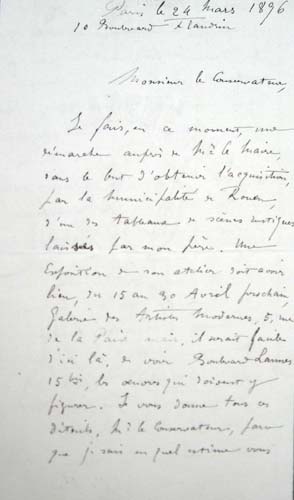 Paris le 24 Mars 1896
10 Boulevard Flandrin
Monsieur le Conservateur,
Je fais, en ce moment, une
démarche auprès de Mr le Maire,
dans le but d'obtenir l'acquisition,
par la municipalité de Rouen,
d'un des tableaux de scènes rustiques
laissés par mon père. Une
Exposition de son atelier doit avoir
lieu, du 15 au 30 Avril prochain,
Galerie des Artistes Modernes, 5, rue
de la Paix mais, il serait facile
d'ici là, de voir Boulevard Lannes
15 bis, les œuvres qui doivent y
figurer. Je vous donne tous ces
détails, Mr le Conservateur, parce
que je sais en quel estime vous